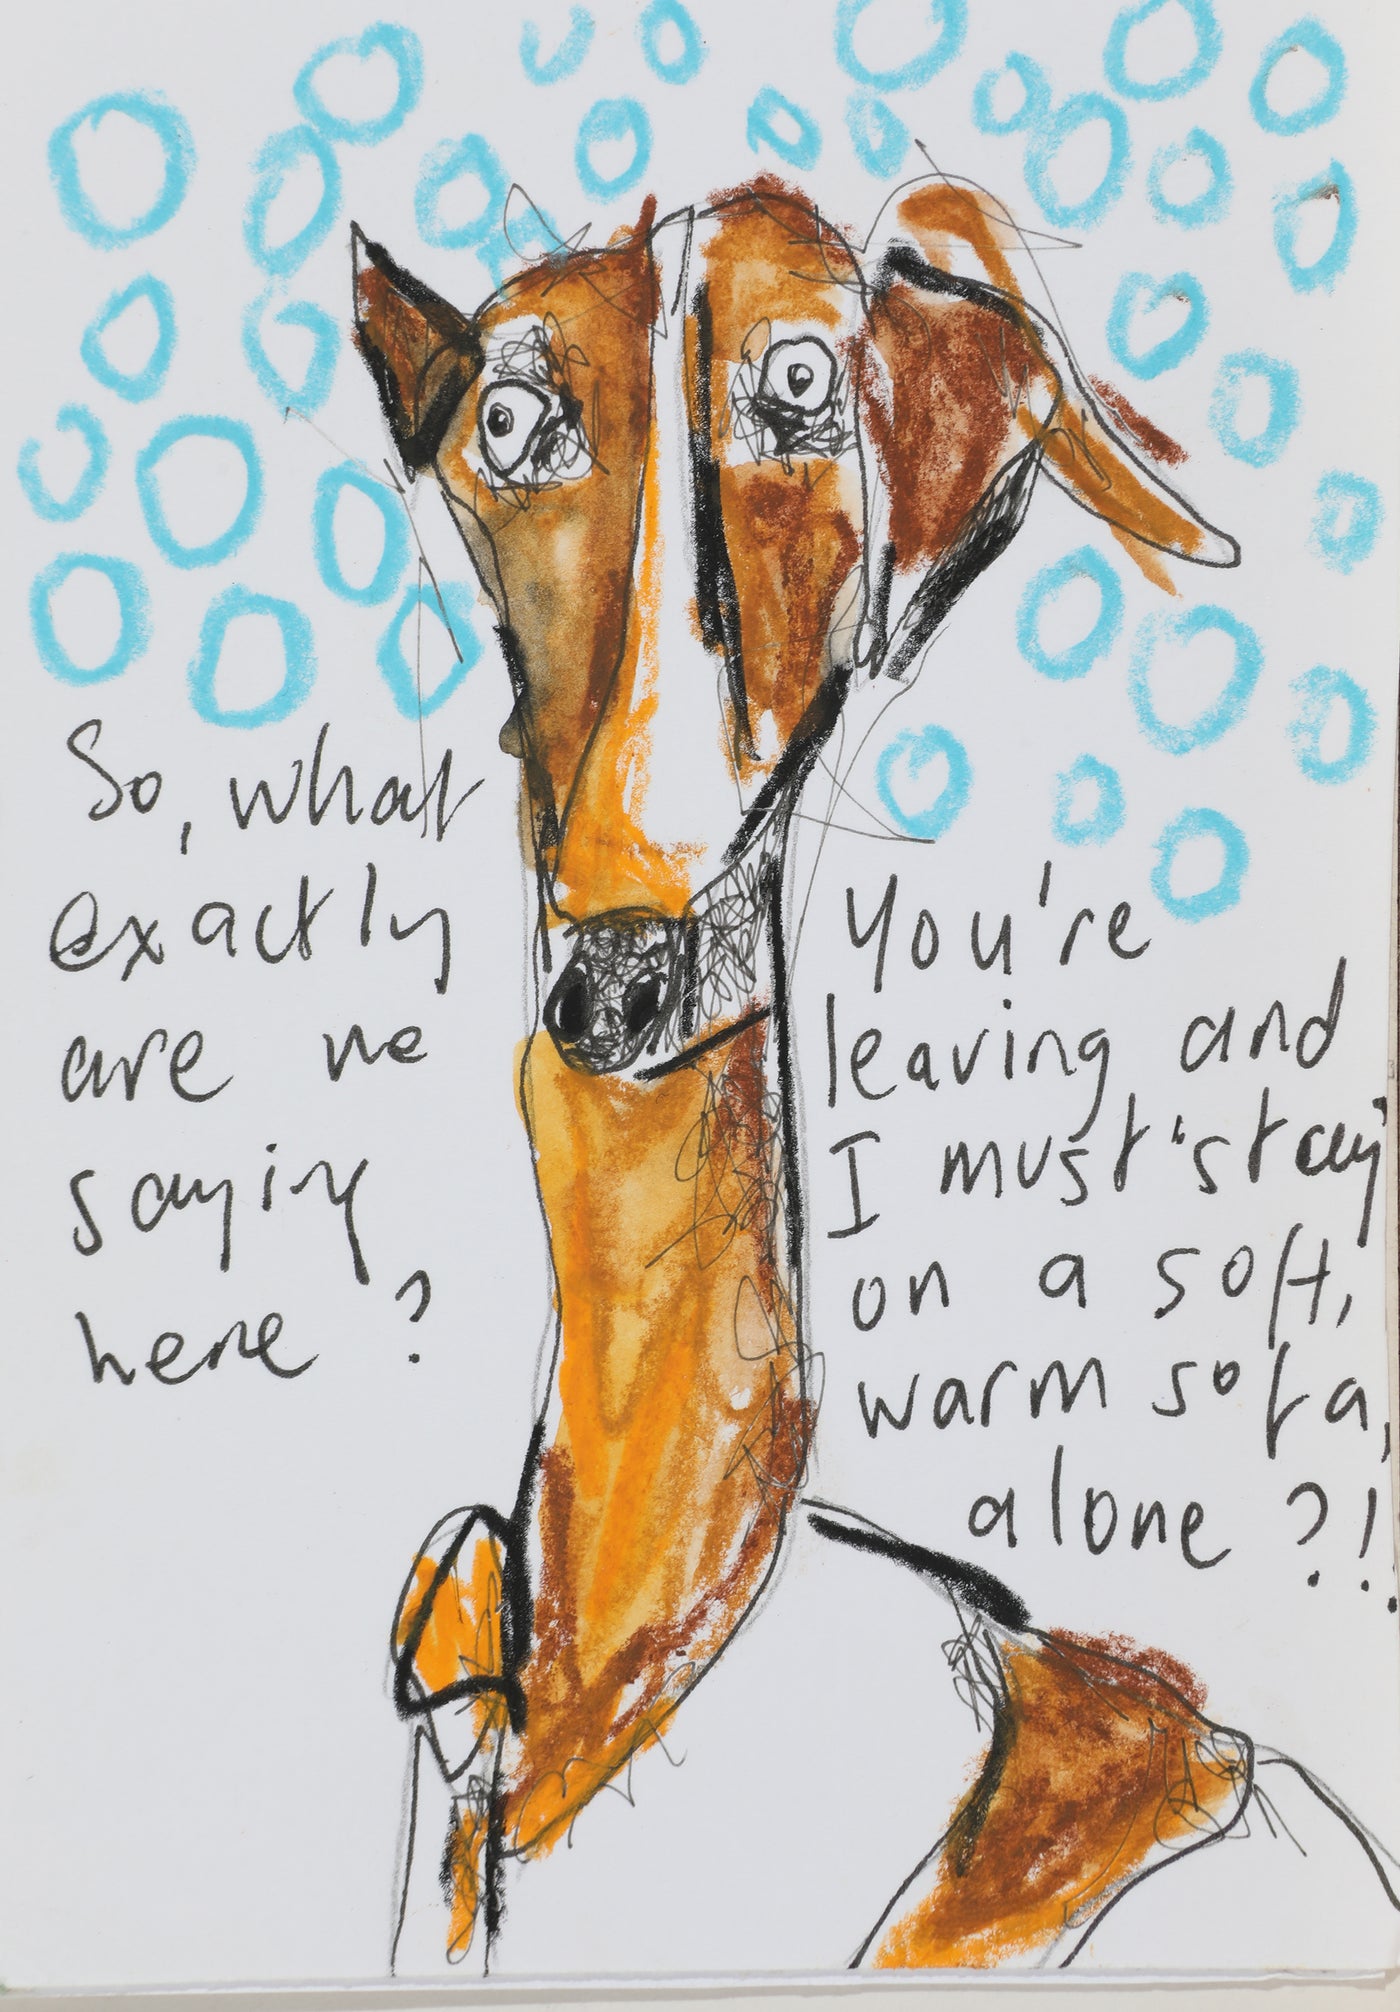 So, what
exactly
are we
saying
here?
You're
leaving and
I must 'stay'
on a soft,
warm sofa,
alone?!